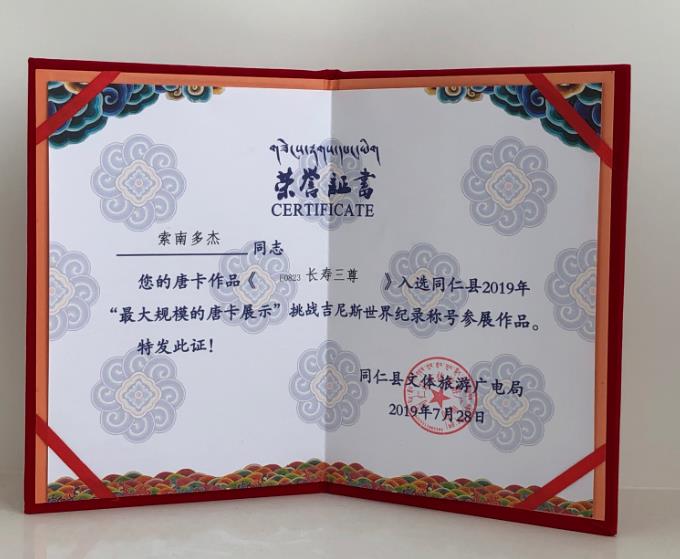 荣誉証書
CERTIFICATE
索南多杰 同志
您的唐卡作品《 F0823 长寿三尊 》入选同仁县2019年
“最大规模的唐卡展示”挑战吉尼斯世界纪录称号参展作品。
特发此证!
同仁县文体旅游广电局
2019年7月28日